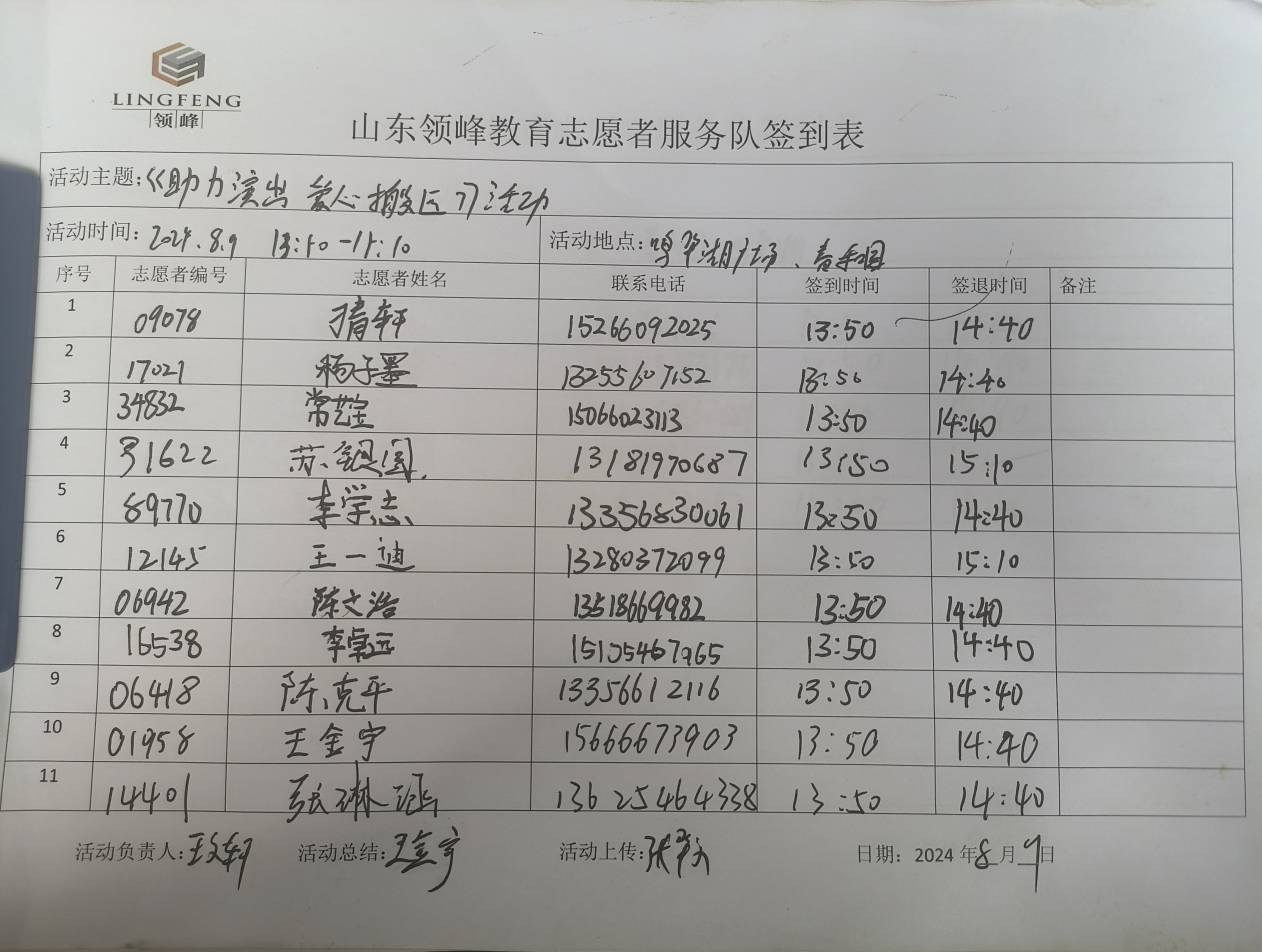 LINGFENG
领峰
山东领峰教育志愿者服务队签到表
活动主题:《助力演出 爱心搬运》活动
活动时间: 2024.8.9 13:50-15:10 活动地点: 广场、
序号 志愿者编号 志愿者姓名 联系电话 签到时间 签退时间 备注
1 09078 轩 15266092025 13:50 14:40
2 17021 杨子墨 13255607152 13:50 14:40
3 34832 常艺宝 15066023113 13:50 14:40
4 31622 苏 13181970687 13:50 15:10
5 89770 李学志 13356830061 13:50 14:40
6 12145 王一迪 13280372099 13:50 15:10
7 06942 陈文浩 13518669982 13:50 14:40
8 16538 李 远 13:50 14:40
9 06418 陈克平 13356612116 13:50 14:40
10 01958 王金宁 15666673903 13:50 14:40
11 14401 张琳涵 13625464338 13:50 14:40
活动负责人: 轩 活动总结:王金宁 活动上传:张 日期: 2024年8月9日